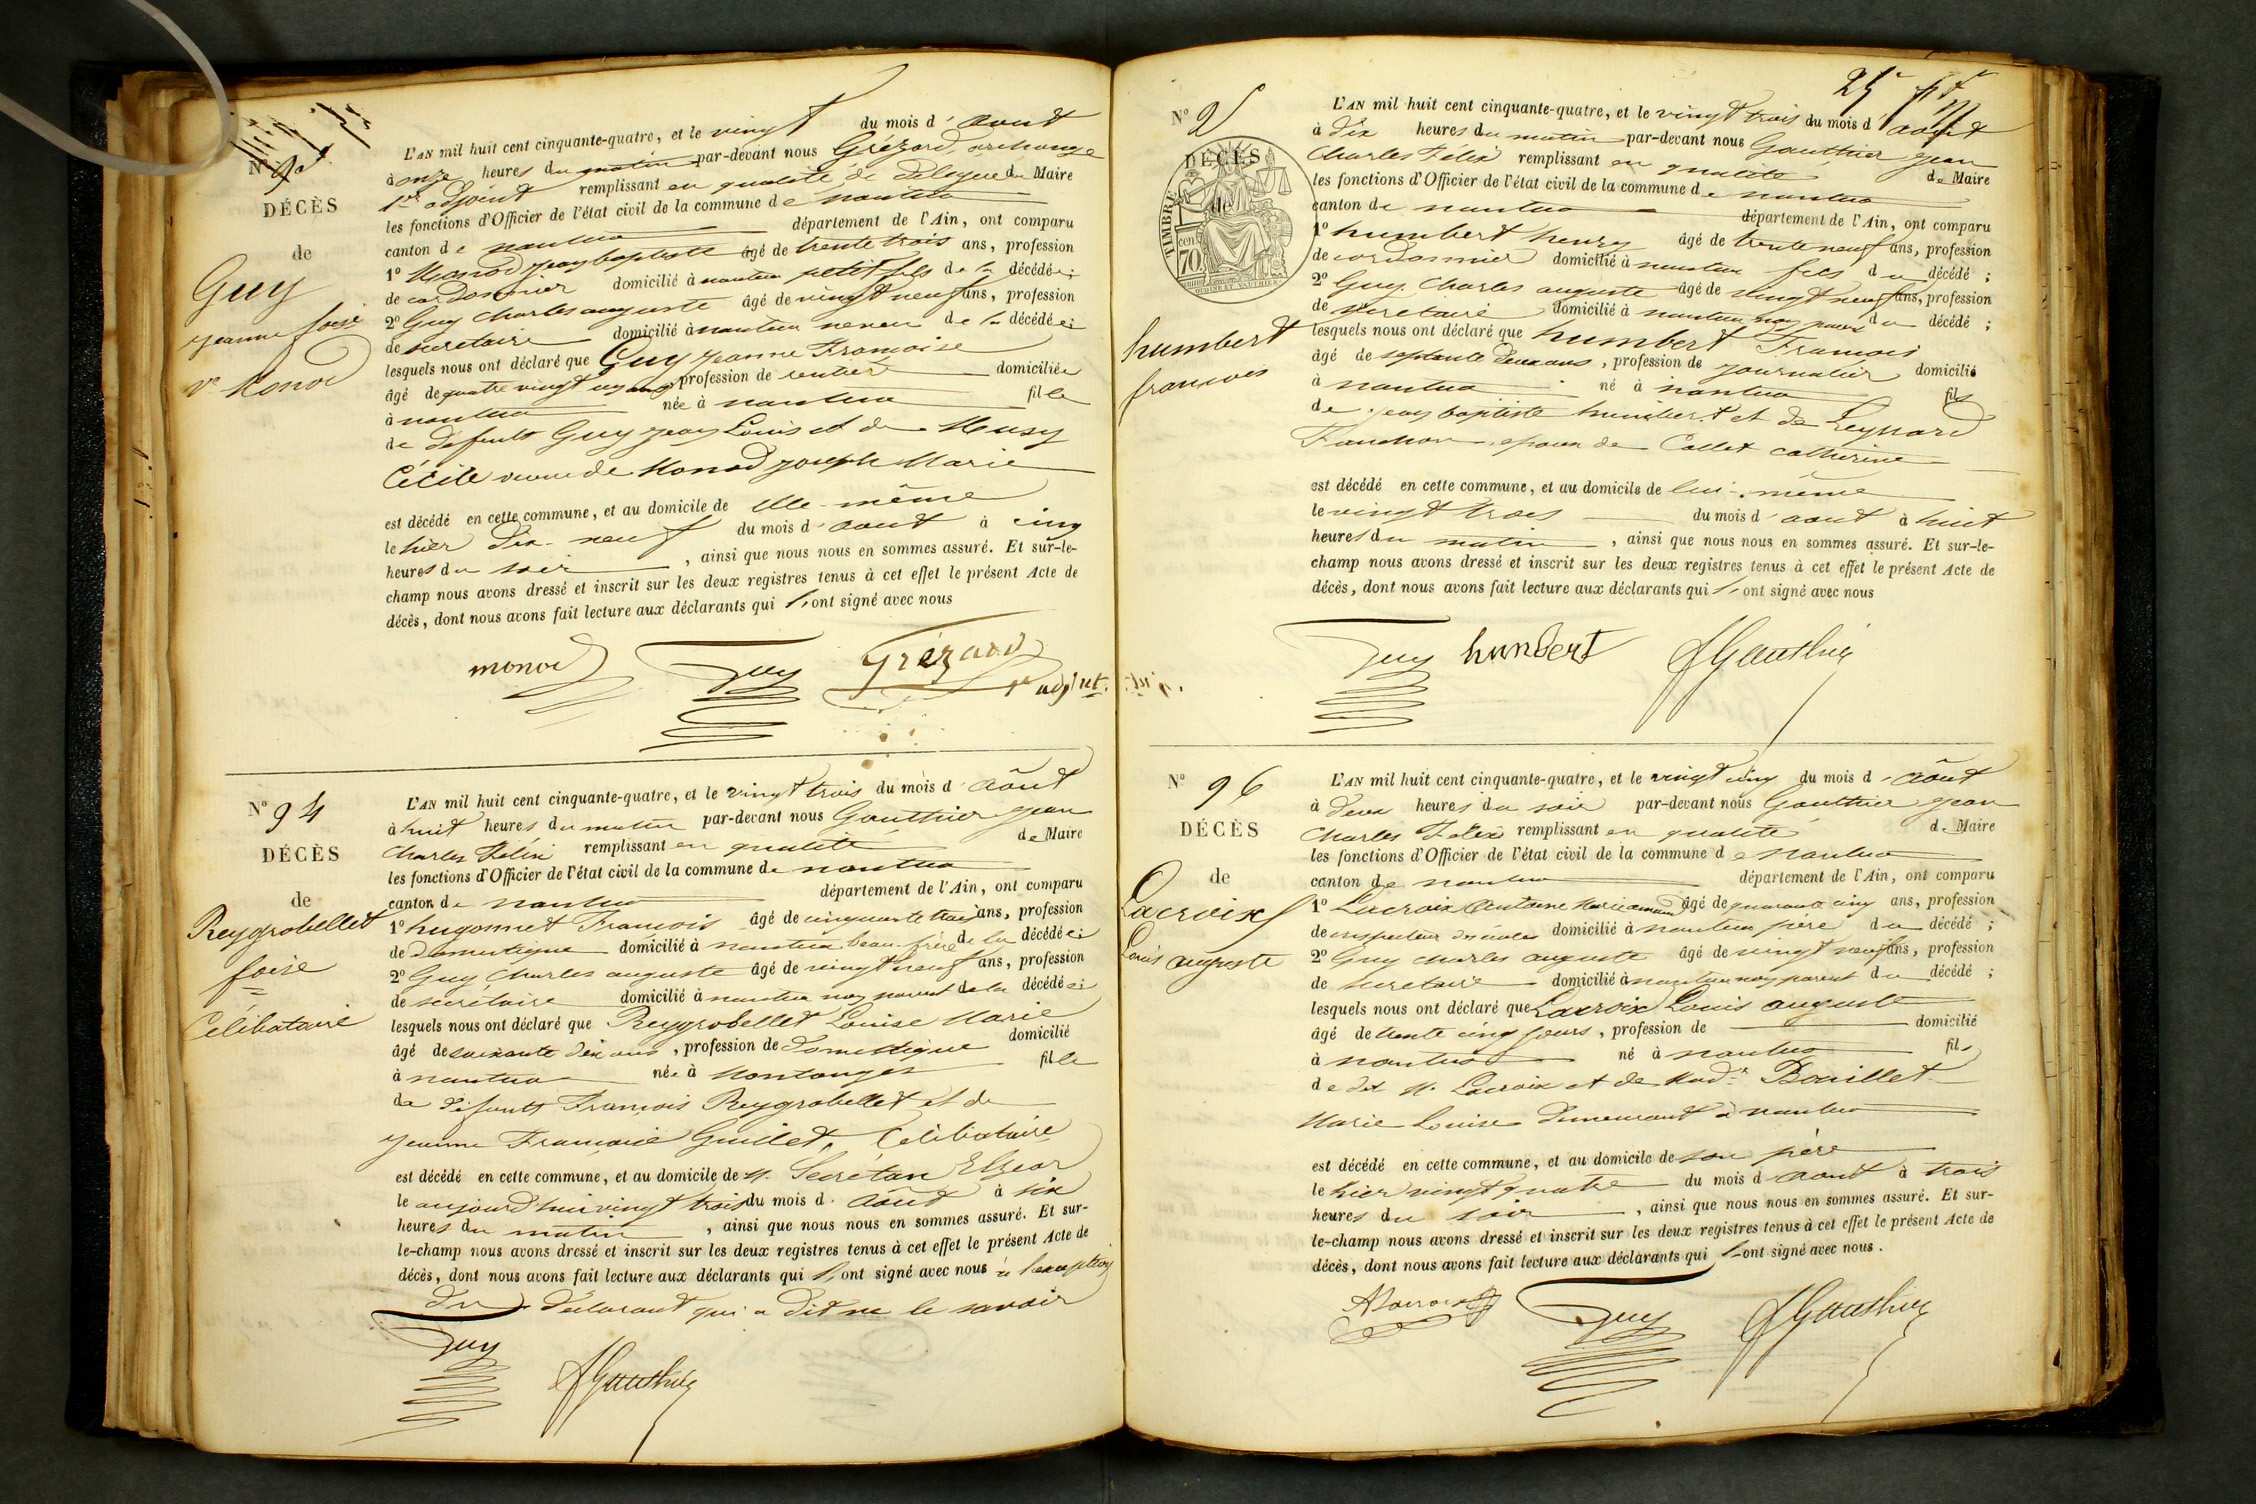 N° 9
DÉCÈS
de
Guy
jeanne foise
ve Monod
L'AN mil huit cent cinquante-quatre, et le vingt du mois d'aout
à onze heures du matin par-devant nous Grézard archange
1er adjoint remplissant en qualité de Délégué du Maire
les fonctions d'Officier de l'état civil de la commune de nantua
canton de nantua département de l'Ain, ont comparu
1° Monod jean baptiste âgé de trente trois ans, profession
de cordonnier domicilié à nantua petit fils de la décédée;
2° Guy charles auguste âgé de vingt neuf ans, profession
de secretaire domicilié à nantua neveu de la décédée;
lesquels nous ont déclaré que Guy jeanne Françoise
âgé de quatre vingt un ans, profession de rentier domiciliée
à nantua née à nantua fille
de défunts Guy jean Louis et de Musy
Cécile veuve de Monod joseph Marie
est décédé en cette commune, et au domicile de elle-même
le hier dix-neuf du mois d'aout à cinq
heures du soir, ainsi que nous nous en sommes assuré. Et sur-le-
champ nous avons dressé et inscrit sur les deux registres tenus à cet effet le présent Acte de
décès, dont nous avons fait lecture aux déclarants qui l'ont signé avec nous
monod Guy Grézard
1er adjoint.
N° 94
DÉCÈS
de
Reygrobellet
foise
Célibataire
L'AN mil huit cent cinquante-quatre, et le vingt trois du mois d'août
à huit heures du matin par-devant nous Gauthier jean
charles Félix remplissant en qualité de Maire
les fonctions d'Officier de l'état civil de la commune de nantua
canton de nantua département de l'Ain, ont comparu
1° hugonnet François âgé de cinquante trois ans, profession
de domestique domicilié à nantua beau-frère de la décédée;
2° Guy Charles auguste âgé de vingt neuf ans, profession
de secrétaire domicilié à nantua non parent de la décédée;
lesquels nous ont déclaré que Reygrobellet Louise Marie
âgé de soixante dix ans, profession de domestique domicilié
à nantua née à Montanges fille
de défunts François Reygrobellet et de
jeanne Françoise Guillet, Célibataire
est décédé en cette commune, et au domicile de M. Secrétan Elzear
le aujourd'hui vingt trois du mois d'août à six
heures du matin, ainsi que nous nous en sommes assuré. Et sur-
le-champ nous avons dressé et inscrit sur les deux registres tenus à cet effet le présent Acte de
décès, dont nous avons fait lecture aux déclarants qui l'ont signé avec nous à l'exception
du déclarant qui a dit ne le savoir
Guy JGauthier
25
N° 9
DÉCÈS
de
TIMBRE
cen. 70
humbert
francois
L'AN mil huit cent cinquante-quatre, et le vingt trois du mois d'aout
à dix heures du matin par-devant nous Gauthier jean
Charles Félix remplissant en qualité de Maire
les fonctions d'Officier de l'état civil de la commune de nantua
canton de nantua département de l'Ain, ont comparu
1° humbert henry âgé de trente neuf ans, profession
de cordonnier domicilié à nantua fils du décédé;
2° Guy Charles auguste âgé de vingt neuf ans, profession
de secretaire domicilié à nantua non parent du décédé;
lesquels nous ont déclaré que humbert François
âgé de septante deux ans, profession de journalier domicilié
à nantua né à nantua fils
de jean baptiste humbert et de Reynard
Fanchon epoux de Collet catherine
est décédé en cette commune, et au domicile de lui-même
le vingt trois du mois d'aout à huit
heures du matin, ainsi que nous nous en sommes assuré. Et sur-le-
champ nous avons dressé et inscrit sur les deux registres tenus à cet effet le présent Acte de
décès, dont nous avons fait lecture aux déclarants qui l'ont signé avec nous
Guy humbert JGauthier
N° 96
DÉCÈS
de
Lacroix
Louis auguste
L'AN mil huit cent cinquante-quatre, et le vingt cinq du mois d'août
à deux heures du soir par-devant nous Gauthier jean
Charles Félix remplissant en qualité de Maire
les fonctions d'Officier de l'état civil de la commune de nantua
canton de nantua département de l'Ain, ont comparu
1° Lacroix Antoine Marie amand âgé de quarante cinq ans, profession
de inspecteur des écoles domicilié à nantua père du décédé;
2° Guy charles auguste âgé de vingt neuf ans, profession
de secretaire domicilié à nantua non parent du décédé;
lesquels nous ont déclaré que Lacroix Louis auguste
âgé de trente cinq jours, profession de domicilié
à nantua né à nantua fils
de dt M. Lacroix et de Made Bouillet
Marie Louise demeurant à nantua
est décédé en cette commune, et au domicile de son père
le hier vingt quatre du mois d'aout à trois
heures du soir, ainsi que nous nous en sommes assuré. Et sur-
le-champ nous avons dressé et inscrit sur les deux registres tenus à cet effet le présent Acte de
décès, dont nous avons fait lecture aux déclarants qui l'ont signé avec nous.
ALacroix Guy JGauthier